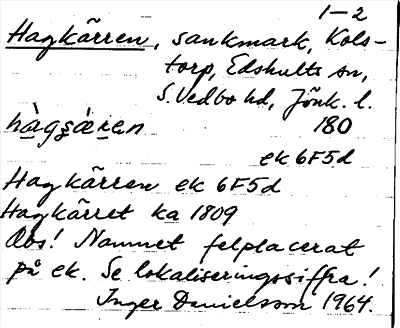 1-2
Hagkärren, sankmark, Kols-
torp, Edshults sn,
S. Vedbo hd, Jönk. l.
hàgʂæ̀ren 180
ek 6F5d
Hagkärren ek 6F5d
Hagkärret ka 1809
Obs! Namnet felplacerat
på ek. Se lokaliseringssiffra!
Inger Danielsson 1964.